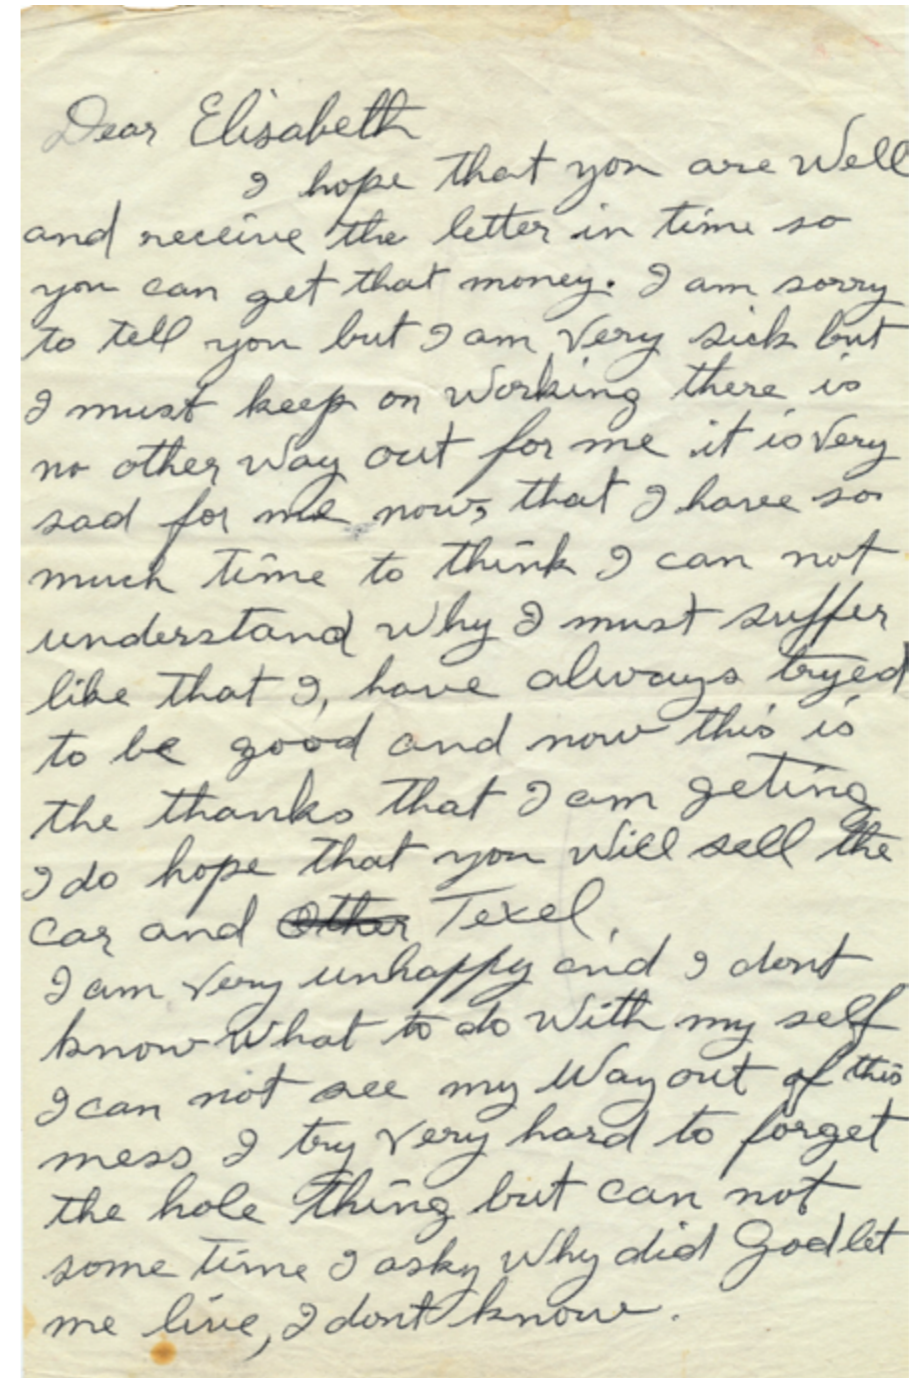 Dear Elisabeth
I hope that you are well
and receive the letter in time so
you can get that money. I am sorry
to tell you but I am very sick but
I must keep on working there is
no other way out for me it is very
sad for me now, that I have so
much time to think I can not
understand why I must suffer
like that I, have always tryed
to be good and now this is
the thanks that I am geting
I do hope that you will sell the
car and Other Texel.
I am very unhappy and I dont
know what to do with my self
I can not see my way out of this
mess I try very hard to forget
the hole thing but can not
some time I ask, why did God let
me live, I dont know.